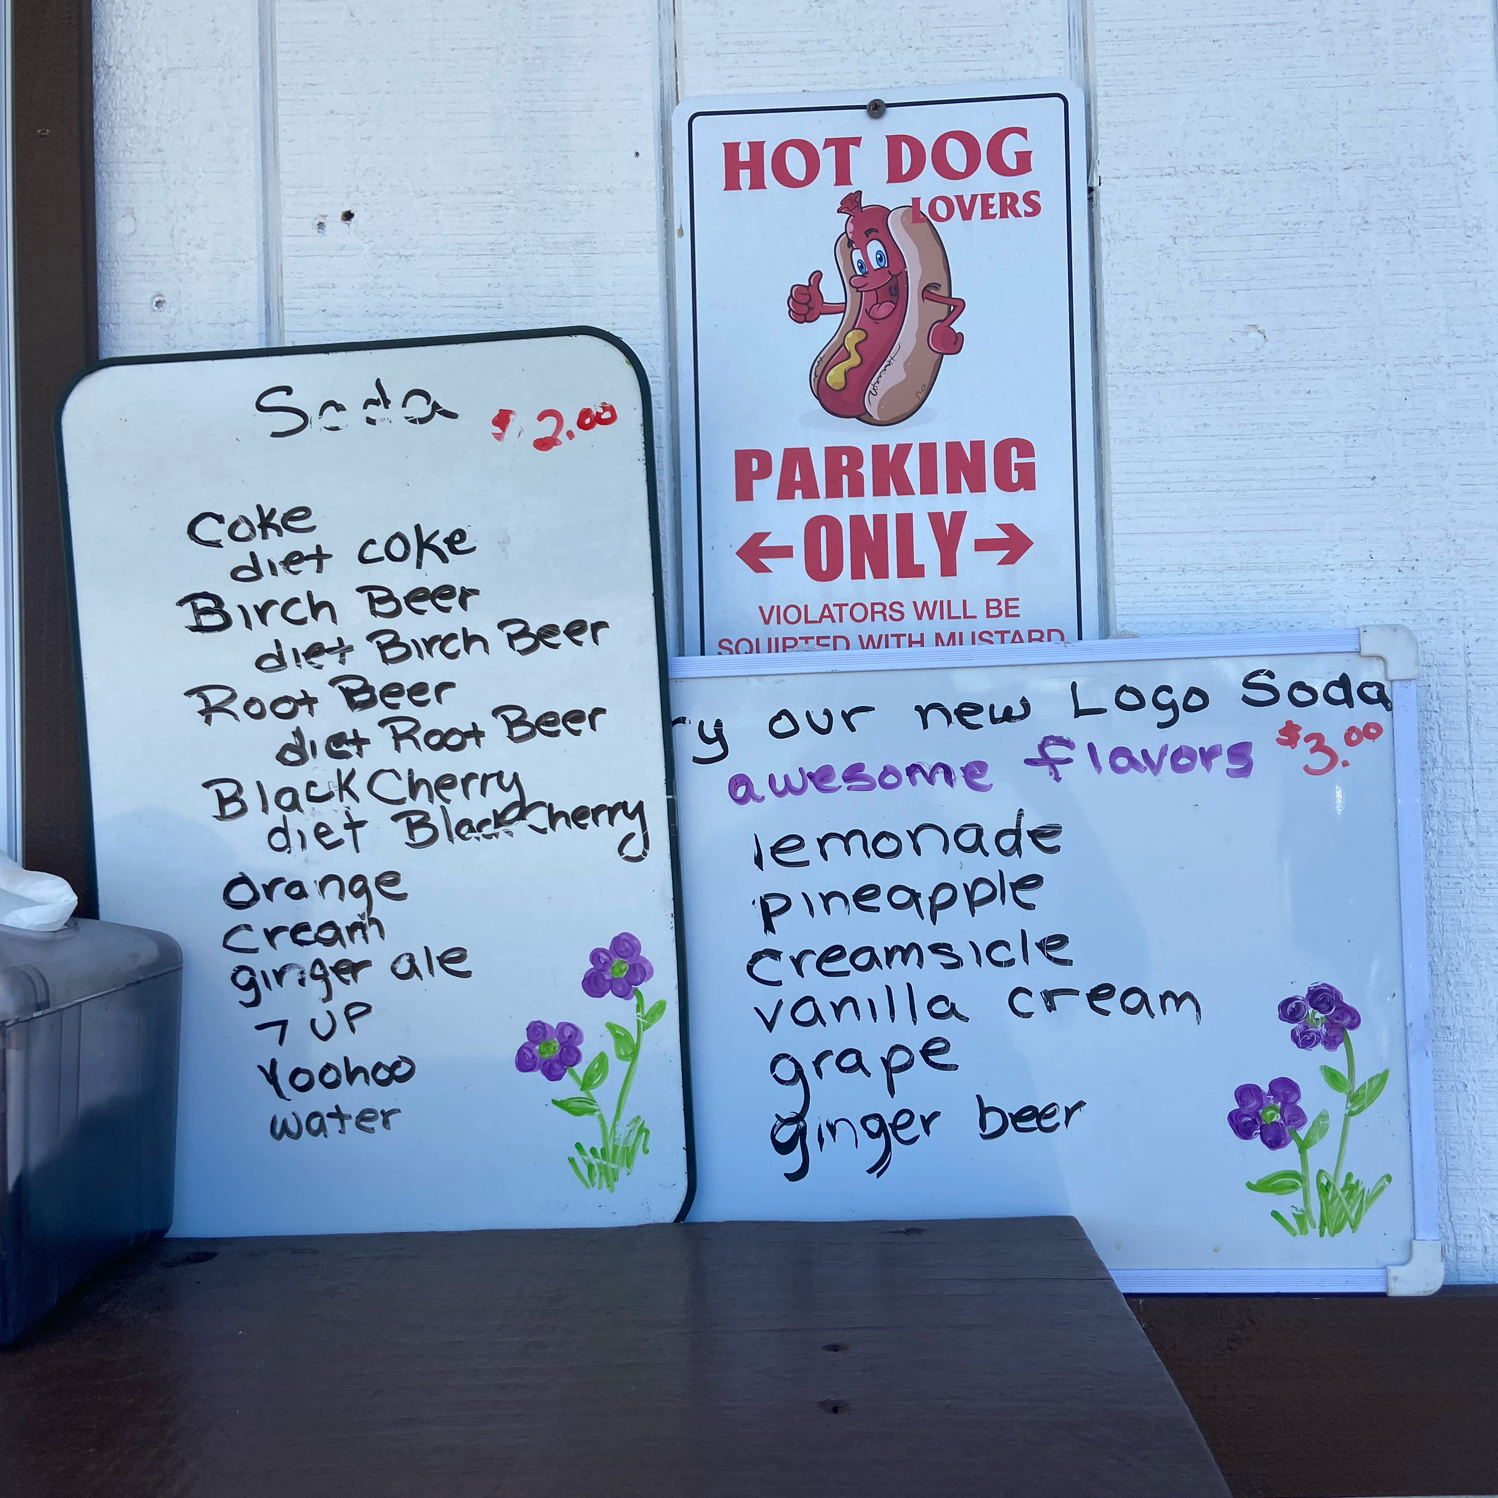 Soda $2.00
Coke
diet coke
Birch Beer
diet Birch Beer
Root Beer
diet Root Beer
Black Cherry
diet Black Cherry
orange
cream
ginger ale
7 UP
Yoohoo
water
HOT DOG
LOVERS
PARKING
←ONLY→
VIOLATORS WILL BE
SQUIRTED WITH MUSTARD
ry our new Logo Soda
awesome flavors $3.00
lemonade
pineapple
creamsicle
vanilla cream
grape
ginger beer